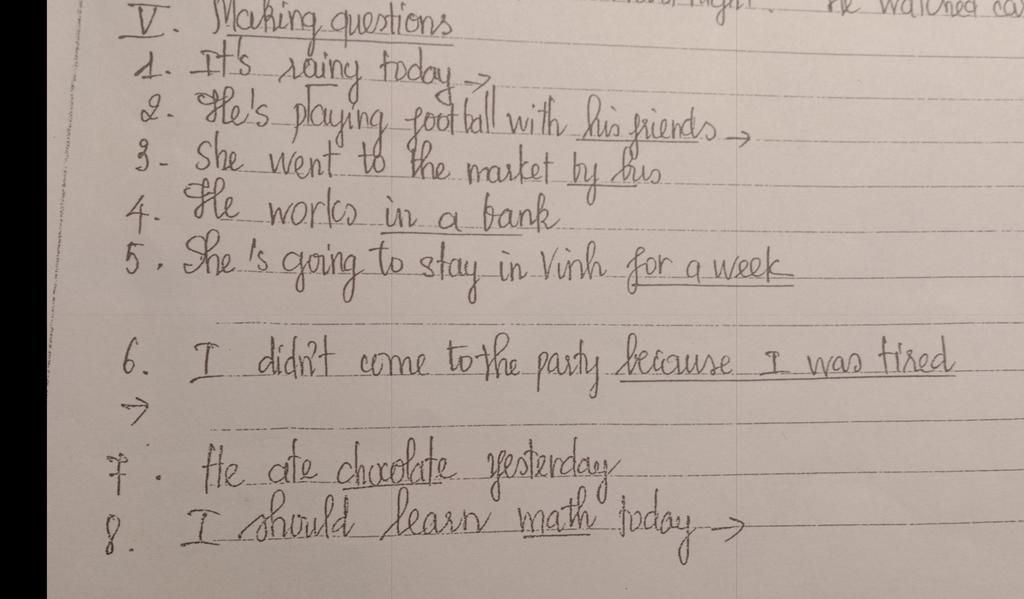 He watched ca
V. Making questions
1. It's raing today →
2. He's playing football with his friends →
3. She went to the market by bus
4. He works in a bank
5. She's going to stay in Vinh for a week
6. I didn't come to the party because I was tired
→
7. He ate chocolate yesterday
8. I should learn math today →